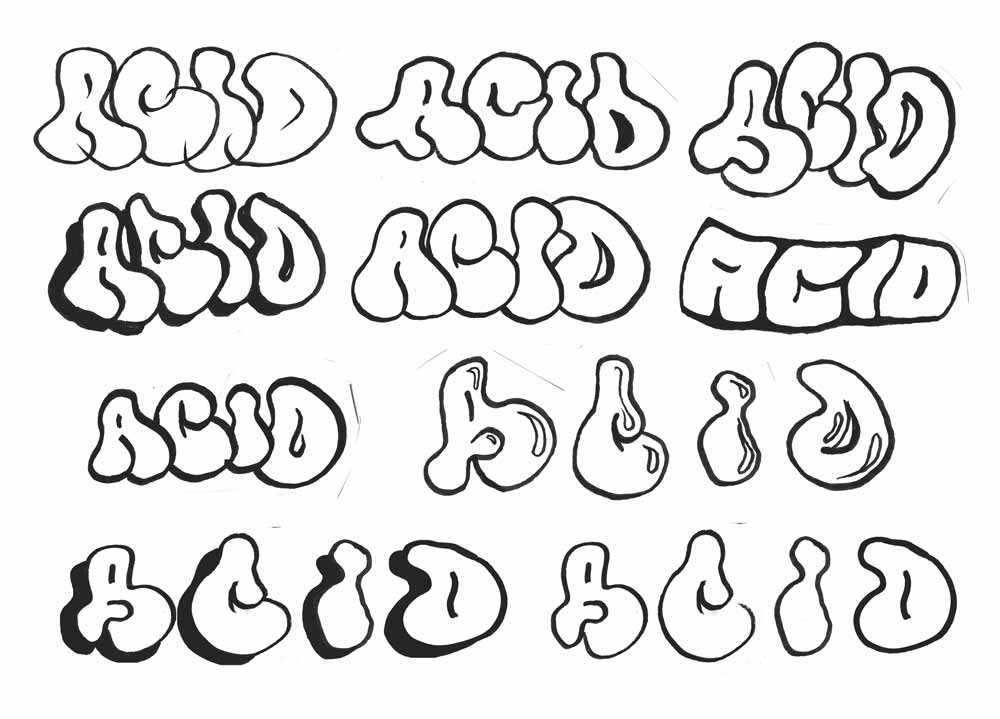 ACID ACID ACID
ACID ACID ACID
ACID ACID
ACID ACID